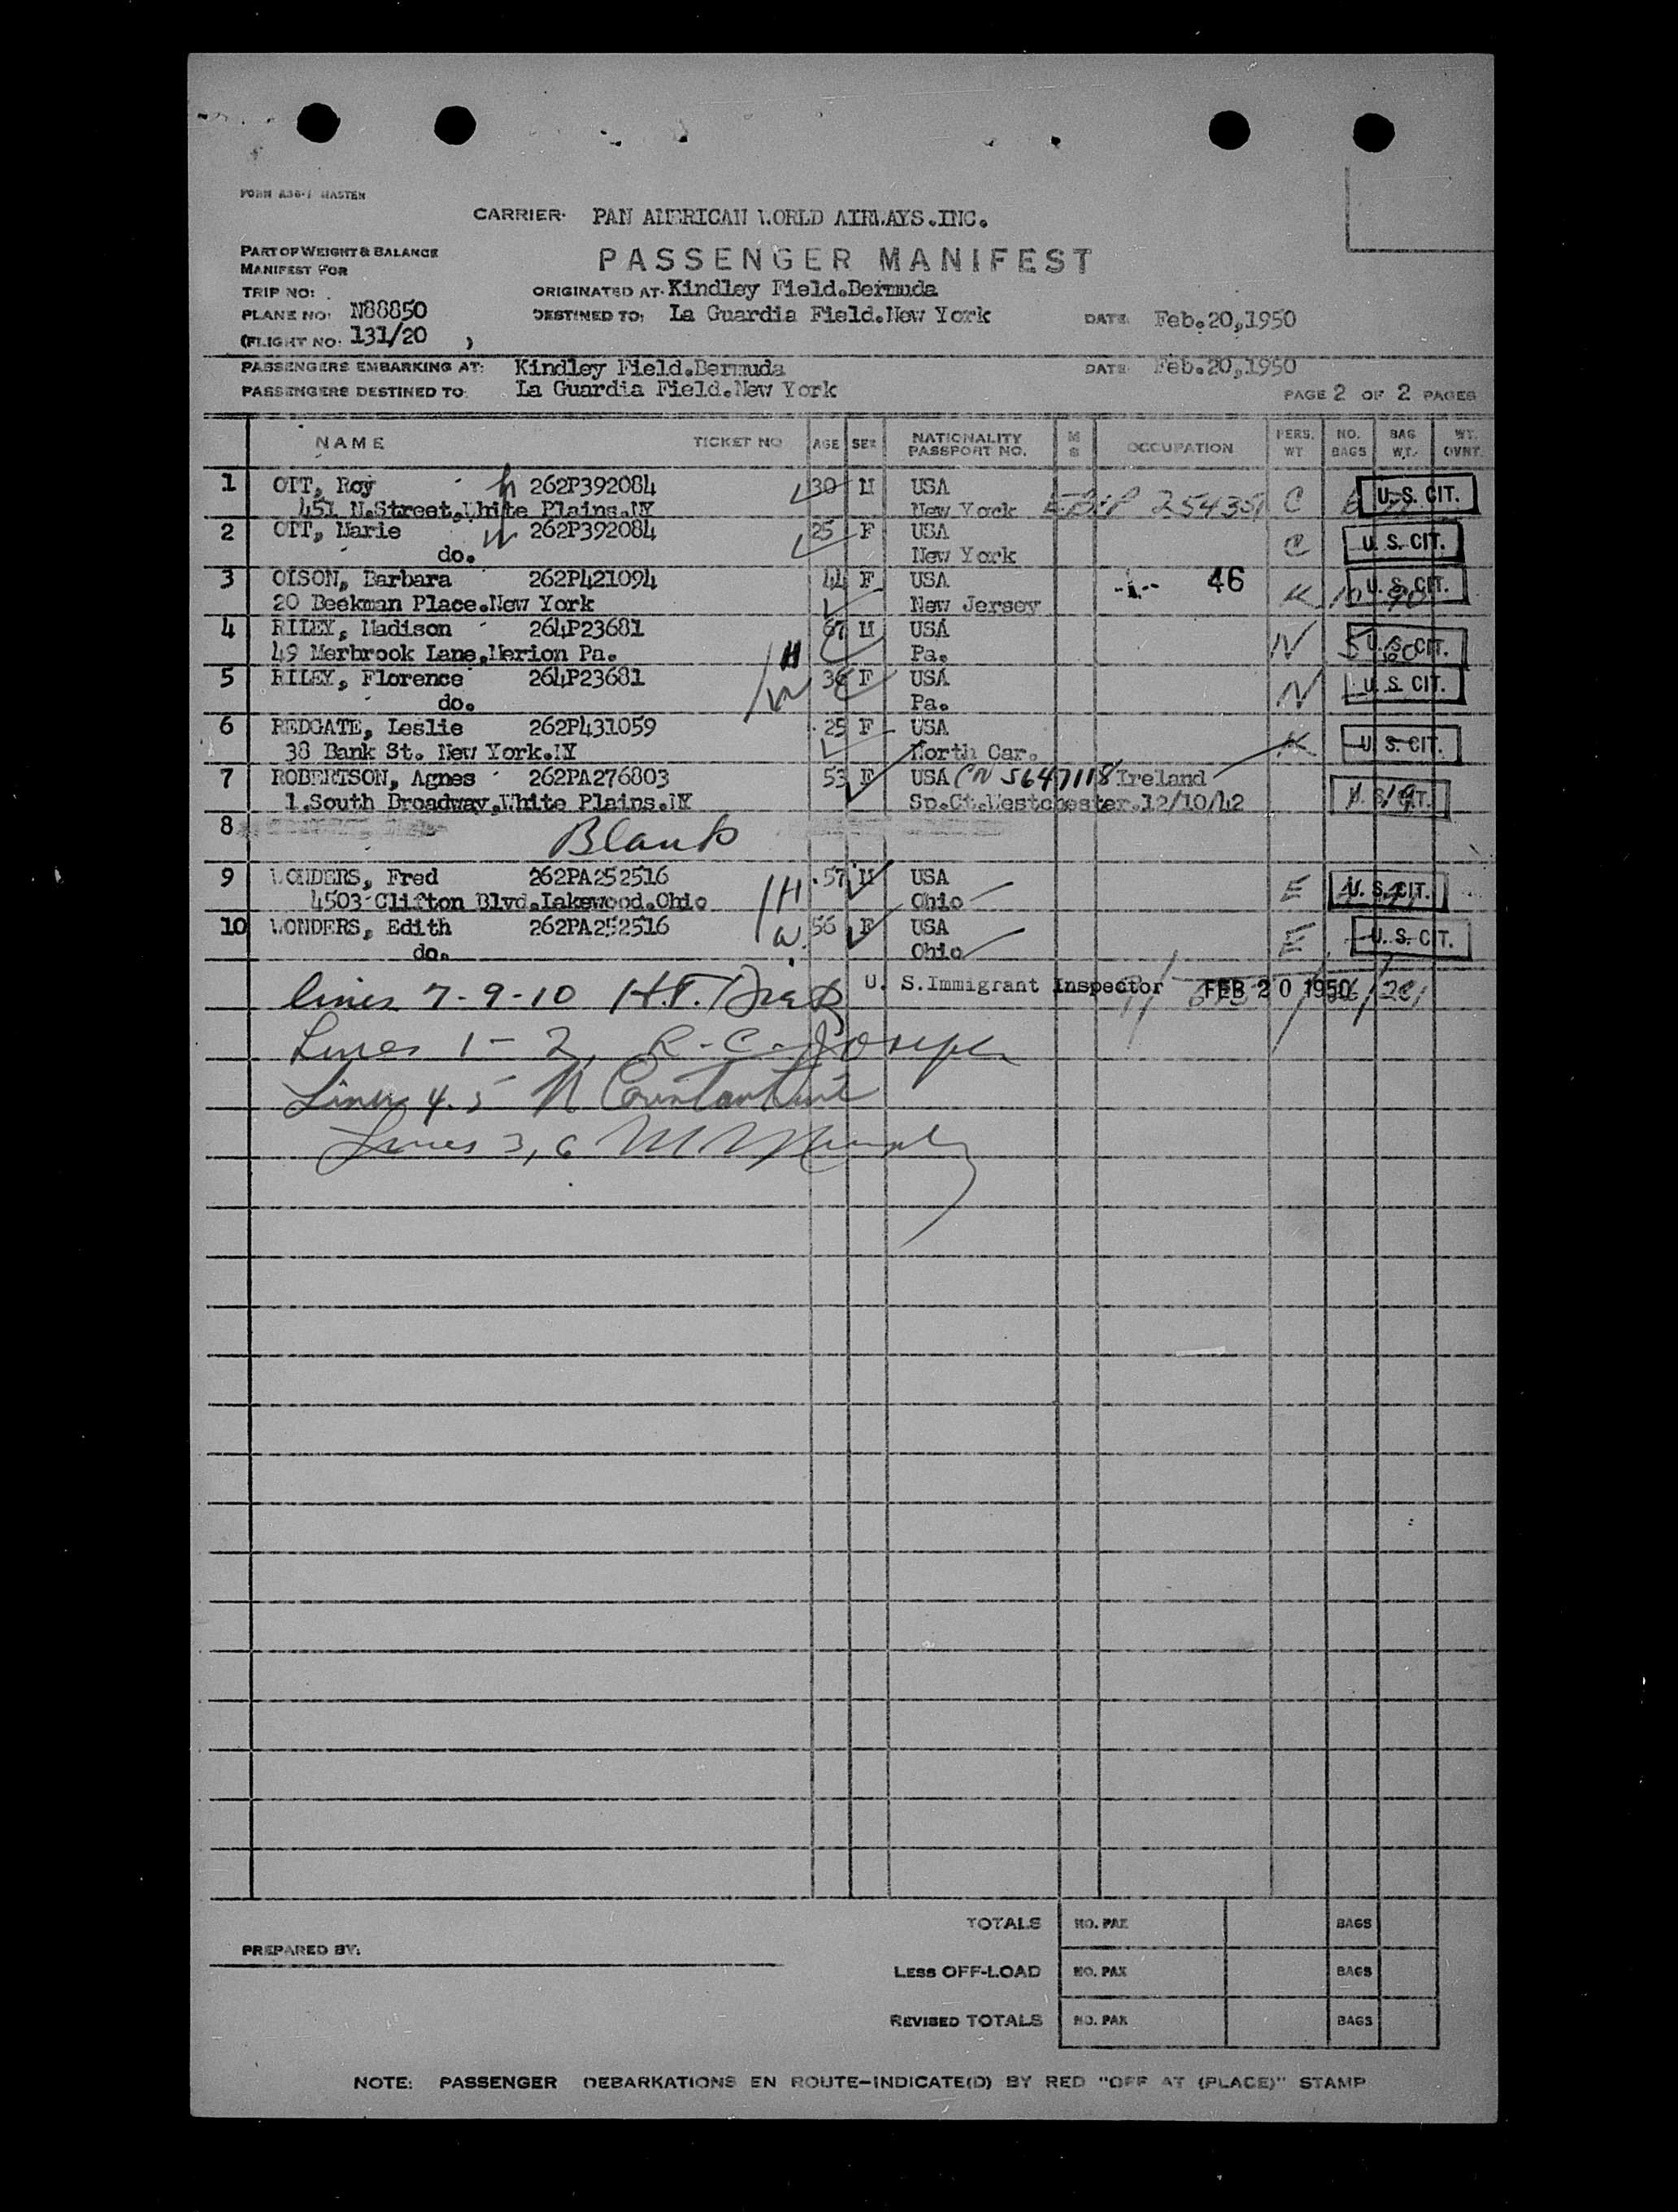 FORM A36-1 MASTER
CARRIER· PAN AMERICAN WORLD AIRWAYS.INC.
PART OF WEIGHT & BALANCE
MANIFEST FOR
PASSENGER MANIFEST
TRIP NO: ORIGINATED AT· Kindley Field.Bermuda
PLANE NO: N88850 DESTINED TO: La Guardia Field.New York DATE: Feb.20,1950
(FLIGHT NO: 131/20 )
PASSENGERS EMBARKING AT: Kindley Field.Bermuda DATE: Feb.20,1950
PASSENGERS DESTINED TO: La Guardia Field.New York PAGE 2 OF 2 PAGES
NAME TICKET NO AGE SEX NATIONALITY PASSPORT NO. M S OCCUPATION PERS. WT NO. BAGS BAG WT. WT. OVNT.
1 OTT, Roy h 262P392084 30 M USA C U.S. CIT.
451 N.Street,White Plains.NY New York 25439
2 OTT, Marie W 262P392084 25 F USA C U.S. CIT.
do. New York
3 OLSON, Barbara 262P421094 44 F USA 46 K U.S. CIT.
20 Beekman Place.New York New Jersey
4 RILEY, Madison 264P23681 67 M USA N 5 U.S. CIT.
49 Merbrook Lane,Merion Pa. H Pa.
5 RILEY, Florence 264P23681 36 F USA N U.S. CIT.
do. W Pa.
6 REDGATE, Leslie 262P431059 25 F USA K U.S. CIT.
38 Bank St. New York.NY North Car.
7 ROBERTSON, Agnes 262PA276803 53 F USA CN 5647118 Ireland
1.South Broadway,White Plains.NY Sp.Ct.Westchester.12/10/42 U.S. CIT.
8 Blank
9 WONDERS, Fred 262PA252516 57 M USA E U.S. CIT.
4503 Clifton Blvd.Lakewood.Ohio H Ohio
10 WONDERS, Edith 262PA252516 56 F USA E U.S. CIT.
do. W. Ohio
lines 7-9-10 H.F. U. S.Immigrant Inspector FEB 20 1950
Lines 1-2, R.C. Joseph
Lines 4.5 N Constantine
Lines 3,6 M Murphy
TOTALS NO. PAX BAGS
PREPARED BY:
LESS OFF-LOAD NO. PAX BAGS
REVISED TOTALS NO. PAX BAGS
NOTE: PASSENGER DEBARKATIONS EN ROUTE—INDICATE(D) BY RED "OFF AT (PLACE)" STAMP